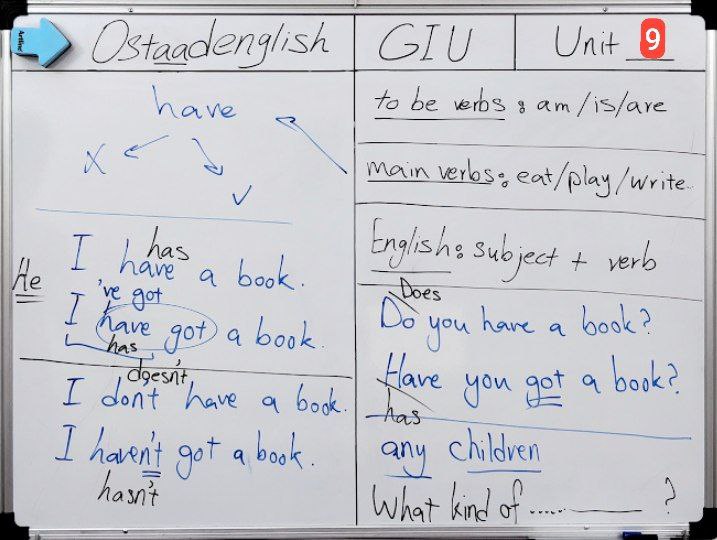 Ostaadenglish
GIU
Unit 9
have
X
✓
has
He
I have a book.
've got
I have got a book.
has
doesn't
I don't have a book.
I haven't got a book.
hasn't
to be verbs : am/is/are
main verbs : eat/play/write..
English : subject + verb
Does
Do you have a book?
Have you got a book?
has
any children
What kind of ..... ______ ?